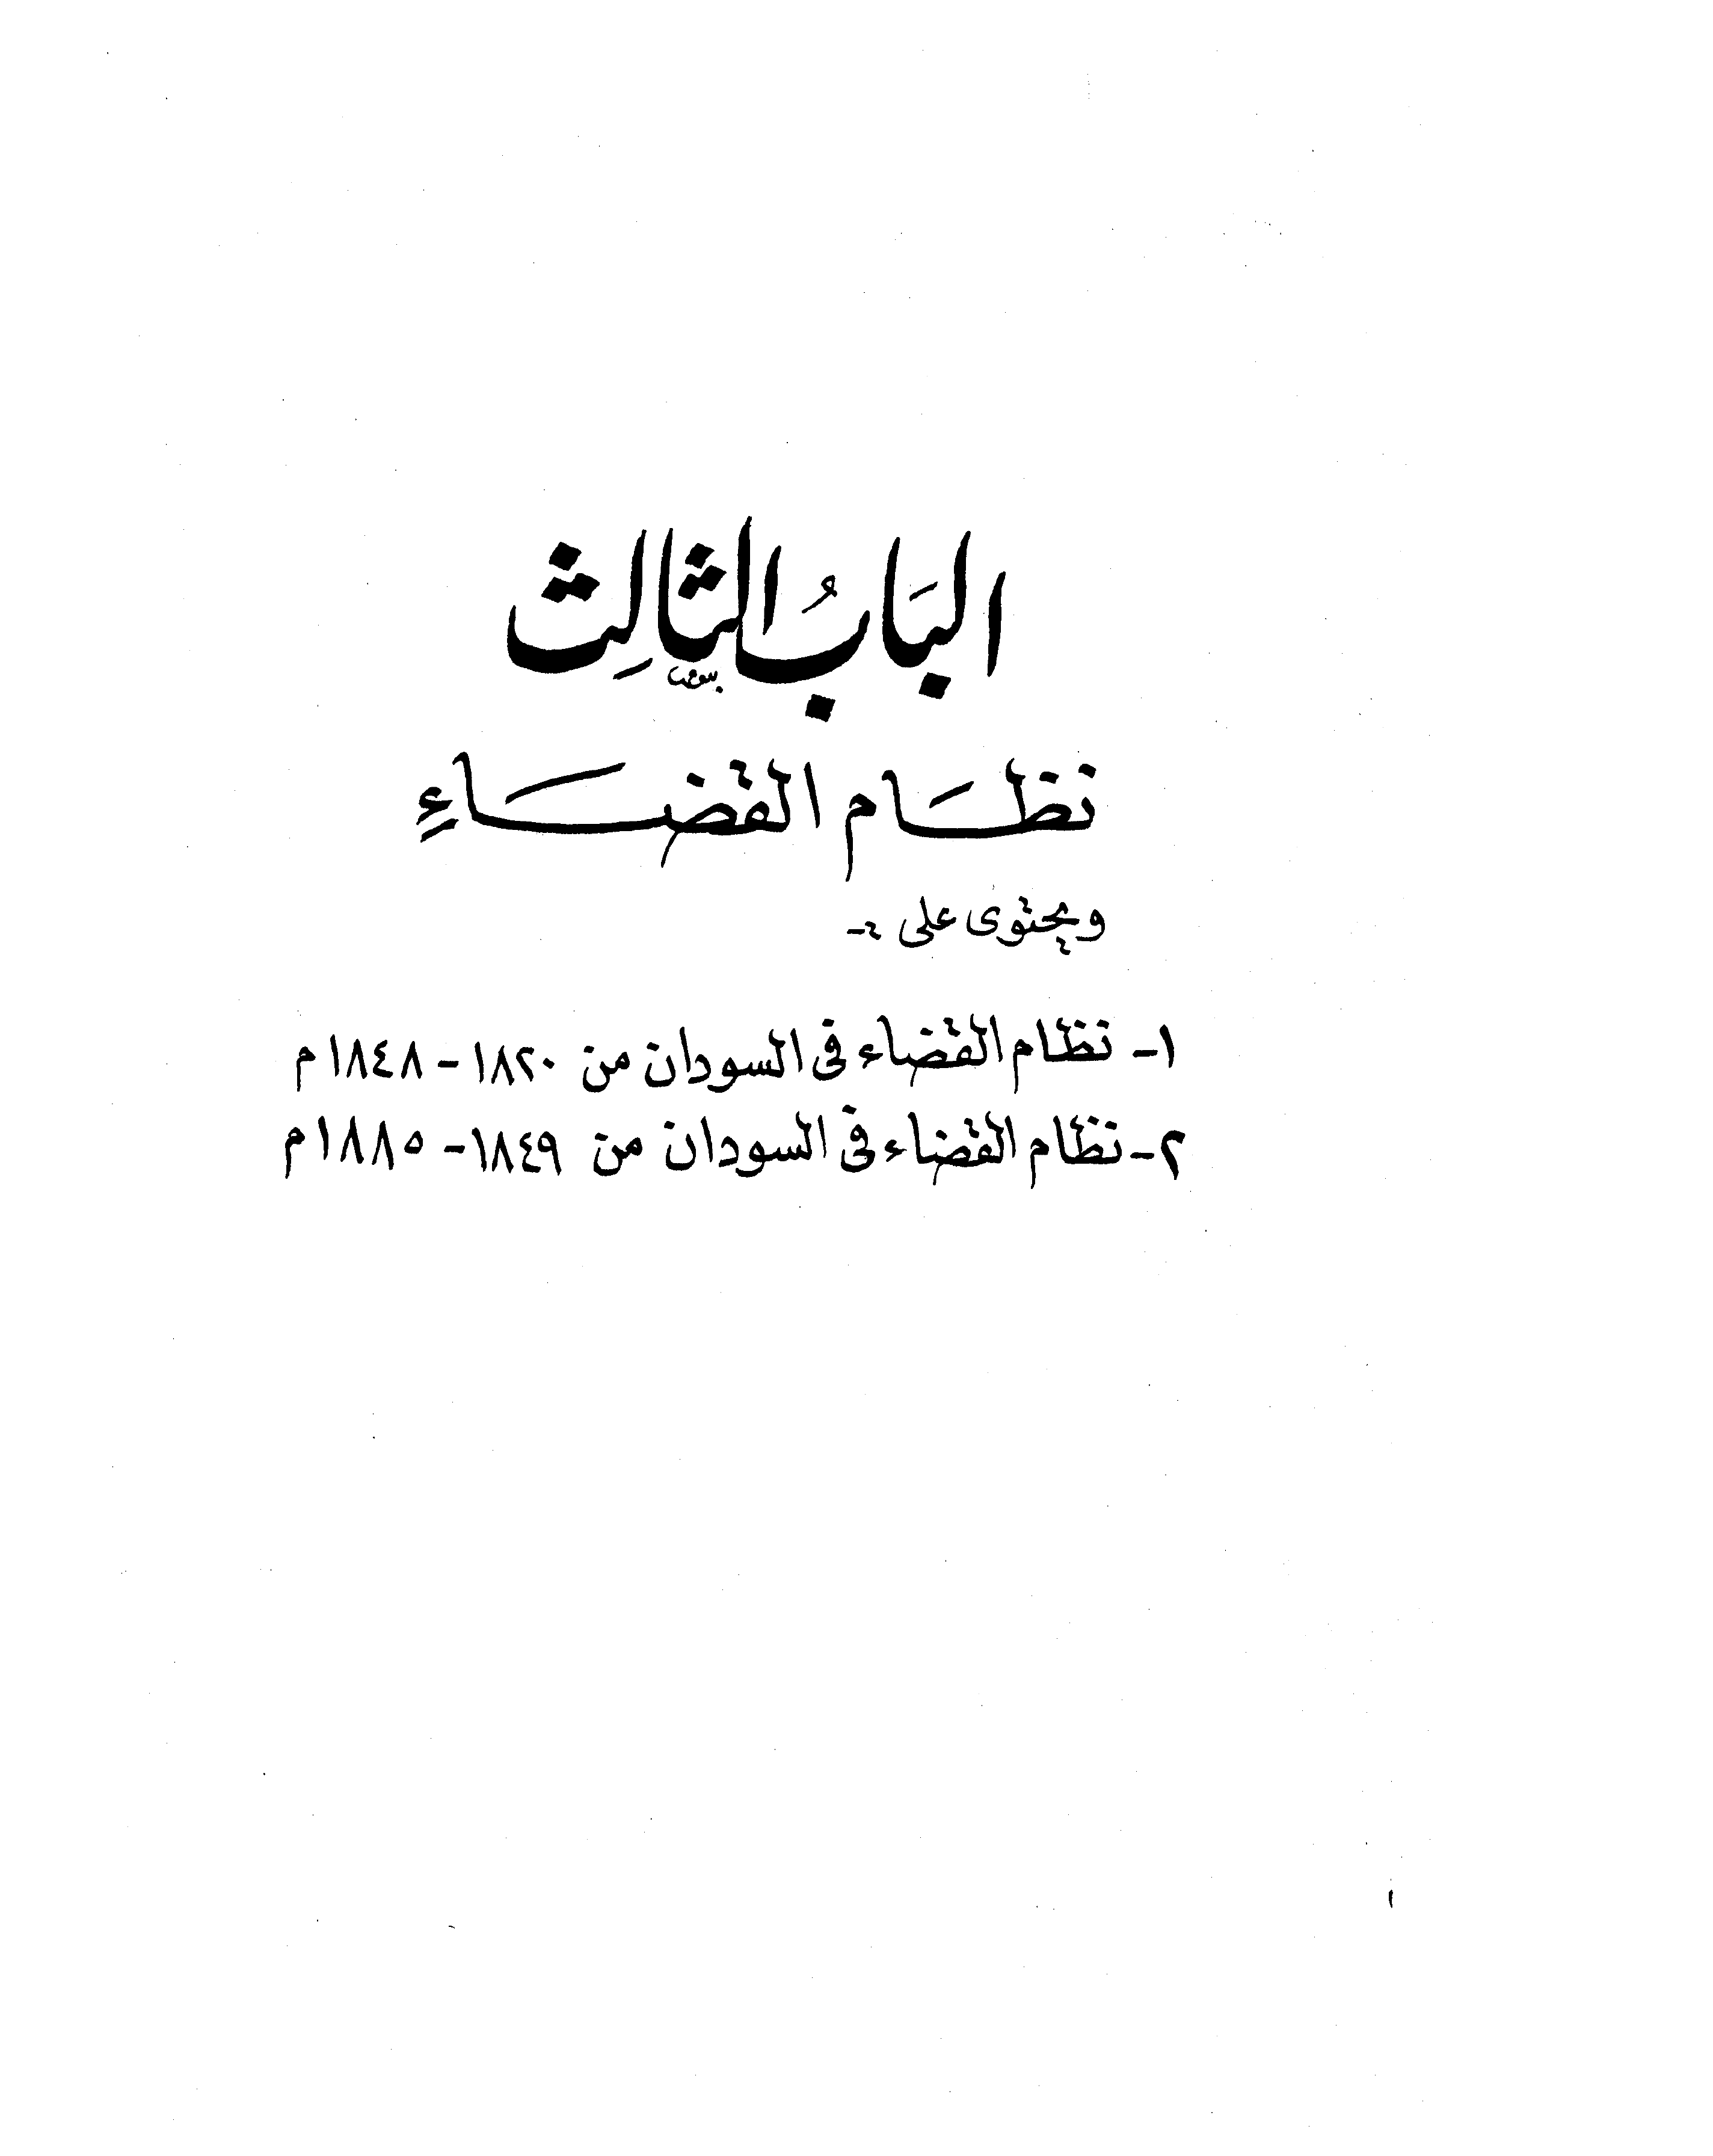 البَابُ الثالِث
نظَام القضَاءِ
ويحتوى على :-
١- نظام القضاء فى السودان من ١٨٢٠ - ١٨٤٨م
٢- نظام القضاء فى السودان من ١٨٤٩ - ١٨٨٥م